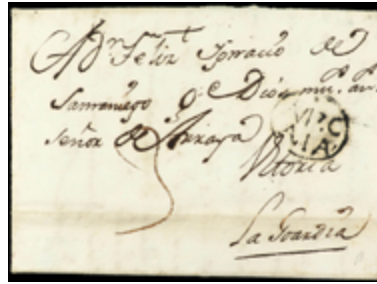 A Dn. Feliz Ignacio de
Samaniego q.e Dios m.s a.s
Señor de Arraya
VIZC
AIA
Vitoria
5
La Guardia